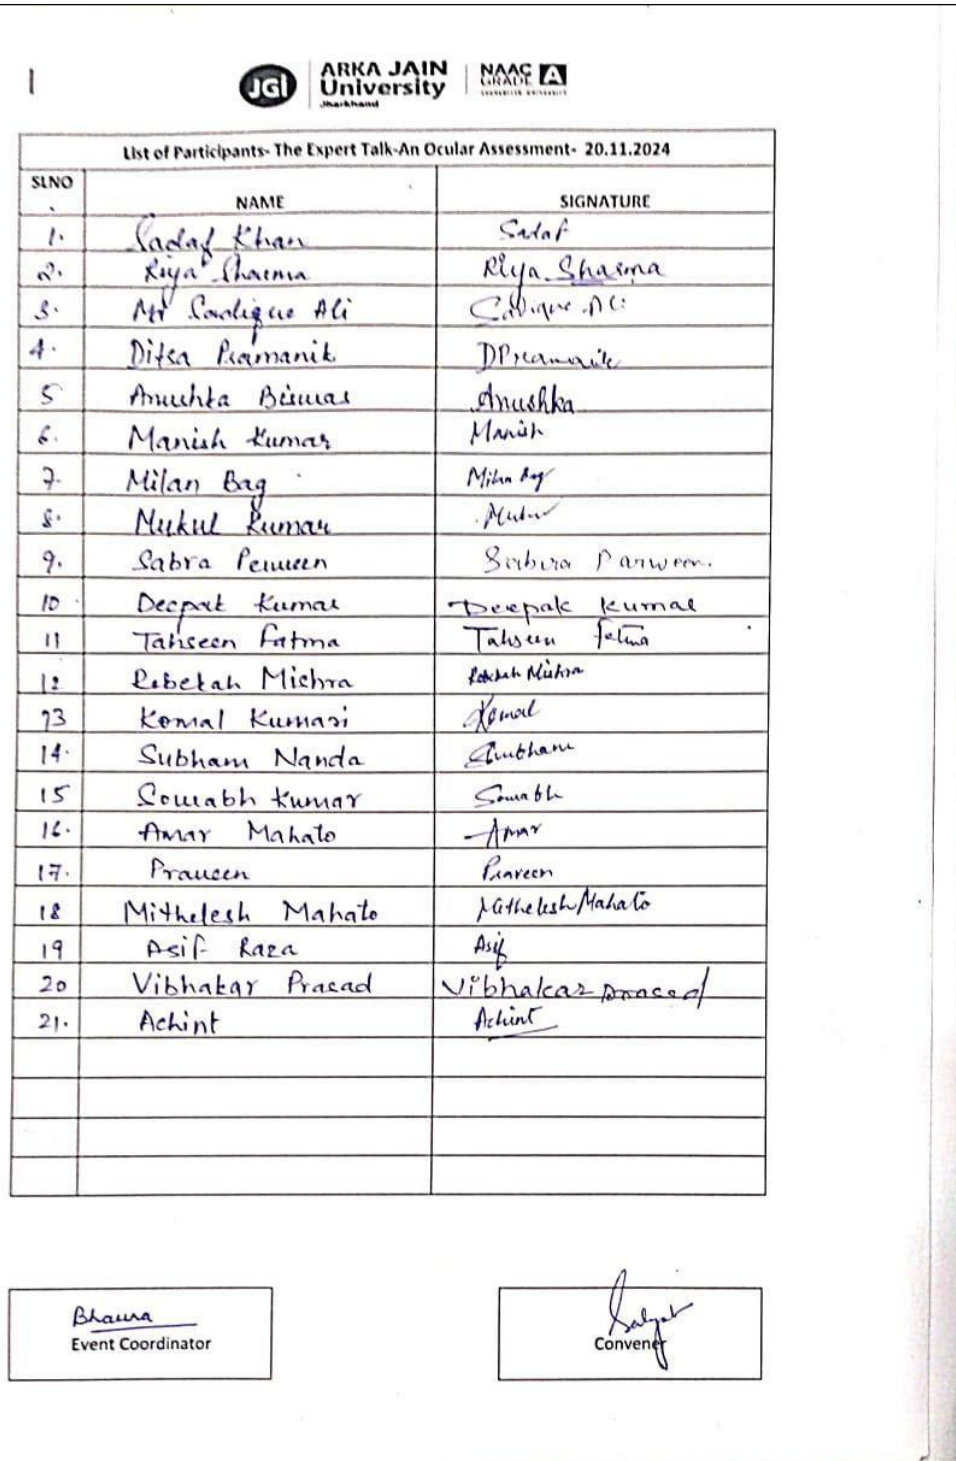 1
JGI ARKA JAIN University Jharkhand NAAC GRADE A
List of Participants- The Expert Talk-An Ocular Assessment- 20.11.2024
SLNO. NAME SIGNATURE
1. Sadaf Khan Sadaf
2. Riya Sharma Riya Sharma
3. Md Sadique Ali Sadique Ali
4. Ditsa Pramanik DPramanik
5 Anushka Biswas Anushka
6. Manish Kumar Manish
7. Milan Bag Milan Bag
8. Mukul Kumar Mukul
9. Sabra Perween Sabira Parween.
10 Deepak Kumar Deepak Kumar
11 Tahseen Fatma Tahseen Fatma
12 Rebekah Mishra Rebekah Mishra
13 Komal Kumari Komal
14. Subham Nanda Shubham
15 Sourabh Kumar Sourabh
16. Amar Mahato Amar
17. Praveen Praveen
18 Mithelesh Mahato Mithelesh Mahato
19 Asif Raza Asif
20 Vibhakar Prasad Vibhakar Prasad
21. Achint Achint
Event Coordinator Convener